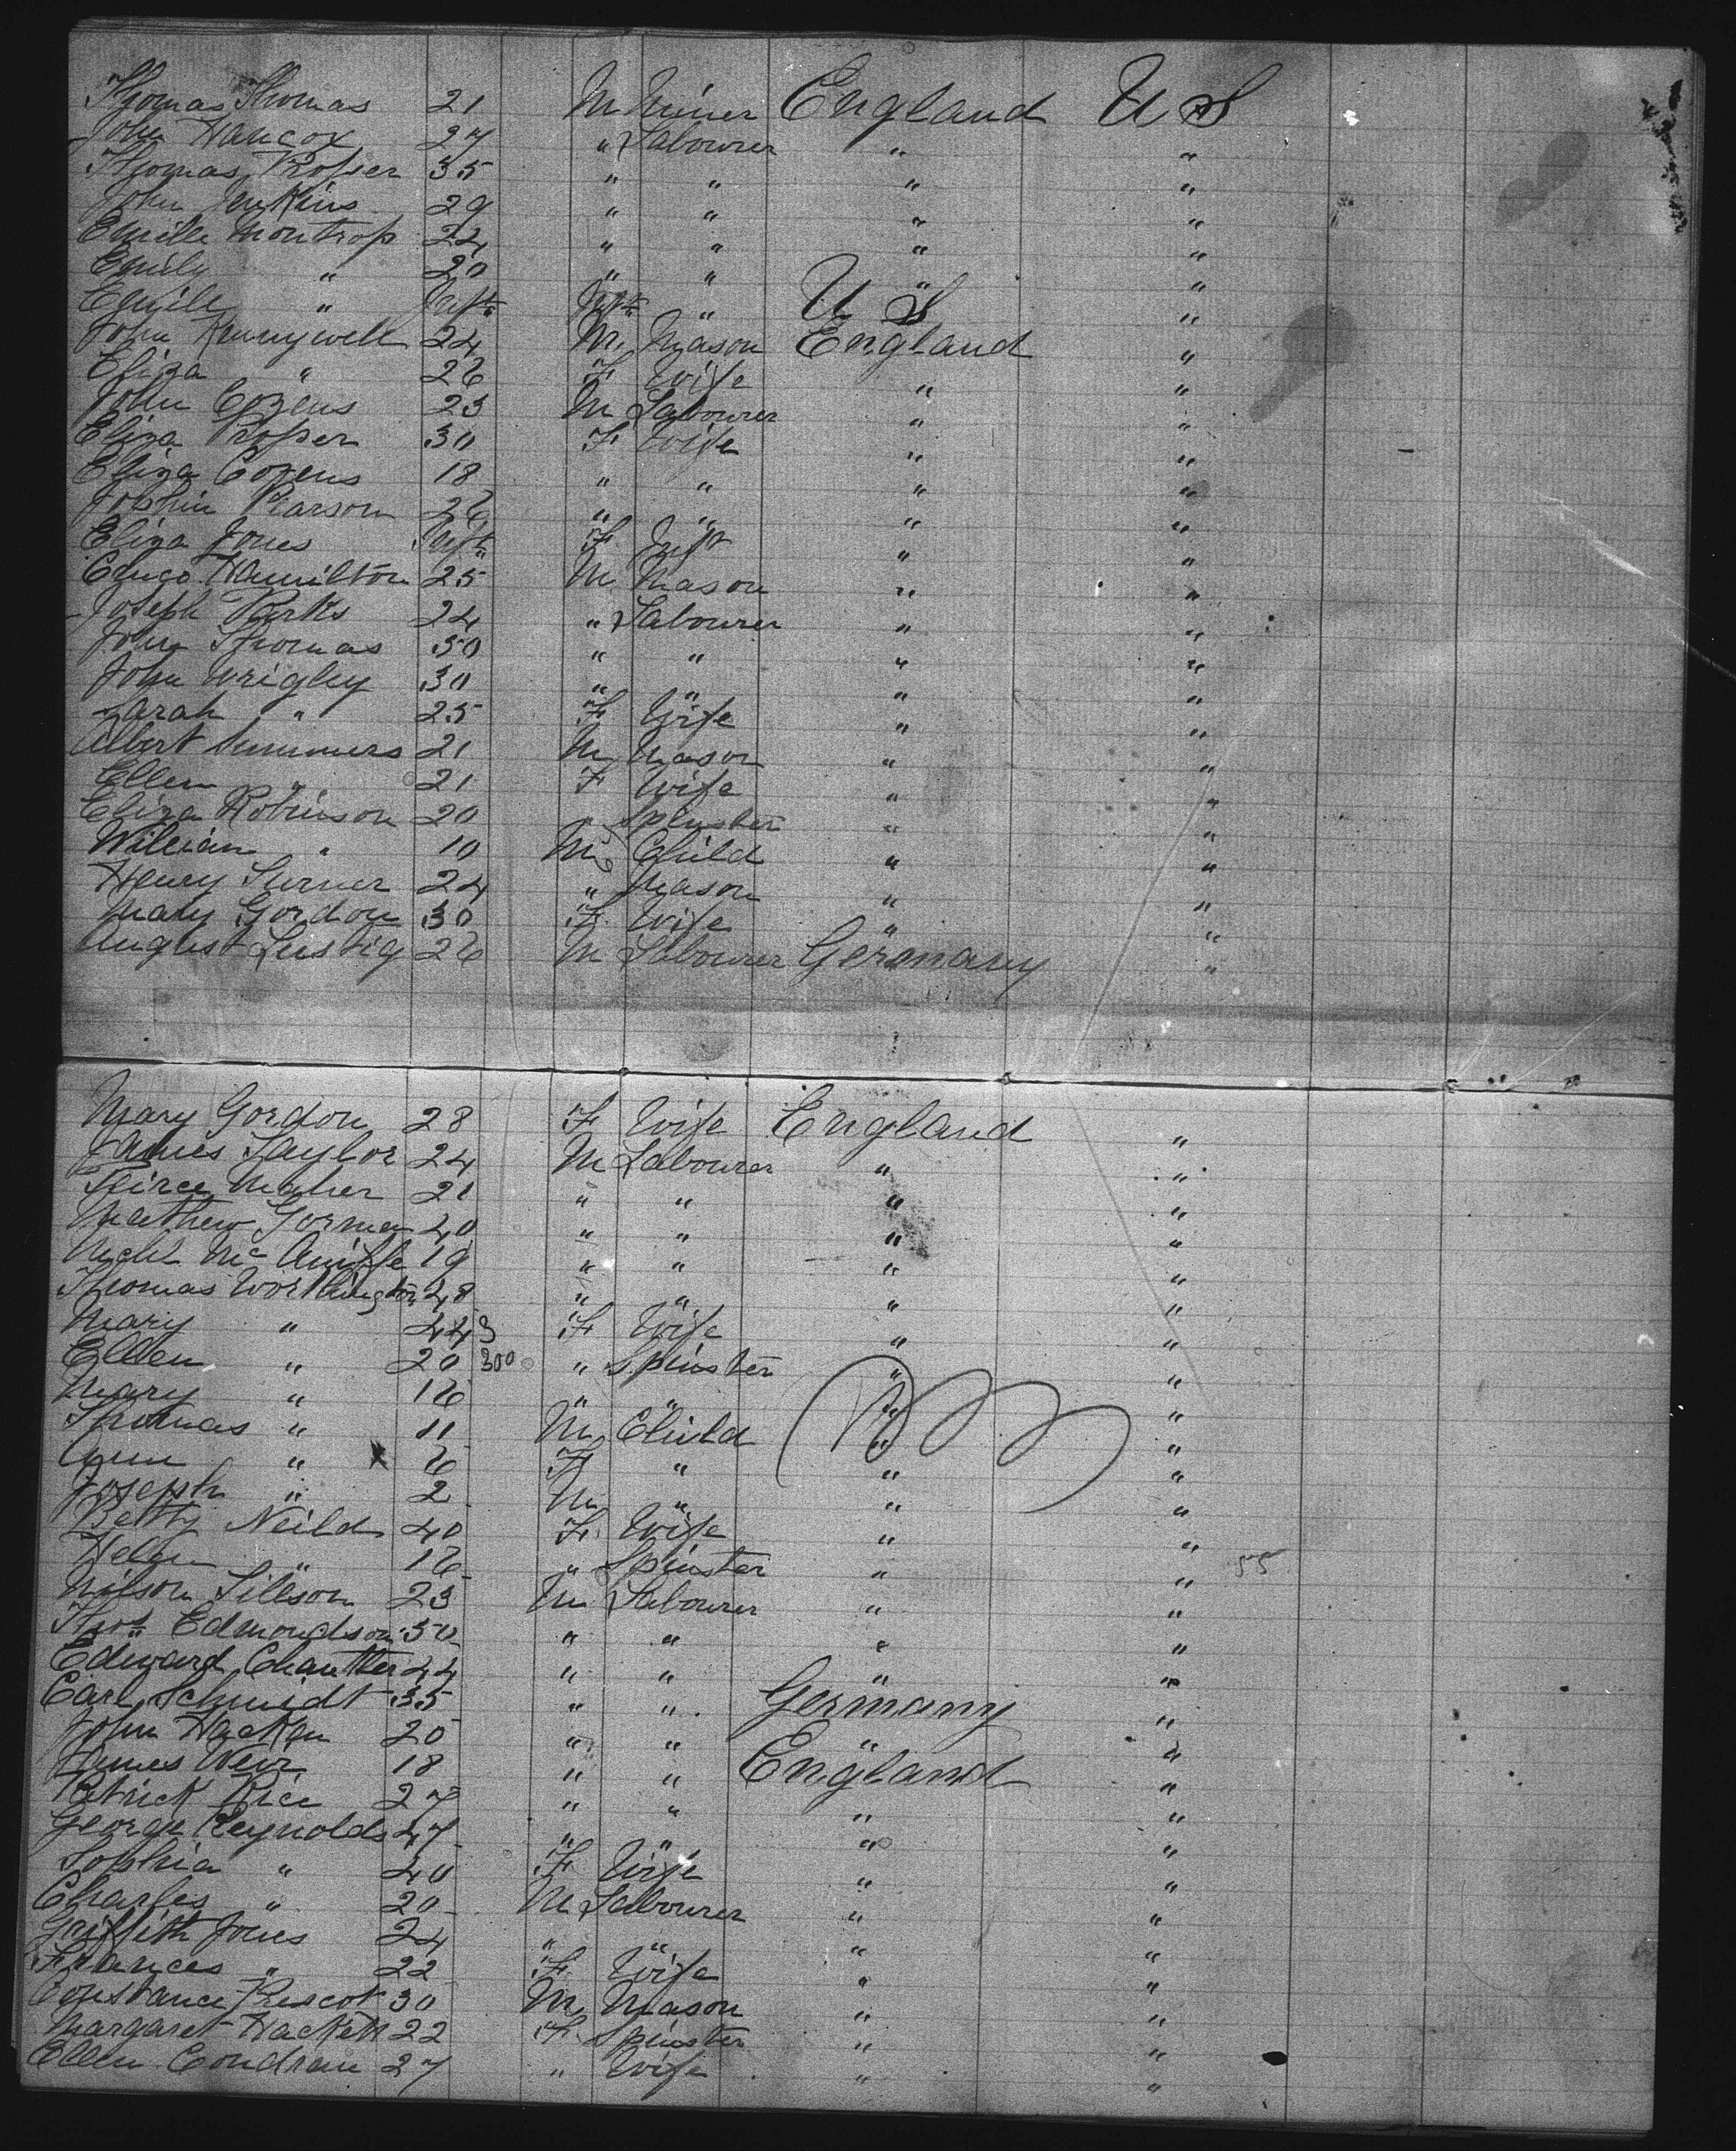 Thomas Thomas 21 M Miner England U S
John Hancox 27 " Labourer " "
Thomas Prosser 35 " " " "
John Jenkins 29 " " " "
Emille Montrop 24 " " " "
Emily " 20 " " " "
Emile " Inft Inft " U S "
John Hunnywell 24 M Mason England "
Eliza " 26 F Wife " "
John Cozens 23 M Labourer " "
Eliza Prosser 30 F Wife " "
Eliza Cozens 18 " " " "
Pearson 26 " " " "
Eliza Jones Inft F Inft " "
Hamilton 25 M Mason " "
Joseph Parks 24 " Labourer " "
John Thomas 50 " " " "
John Wrigley 30 " " " "
Sarah " 25 F Wife " "
Albert Summers 21 M Mason " "
Ellen " 21 F Wife " "
Eliza Robinson 20 " Spinster " "
William " 10 M Child " "
Henry Turner 24 " Mason " "
Mary Gordon 30 F Wife " "
August Lustig 26 M Labourer Germany "
Mary Gordon 28 F Wife England "
James Taylor 24 M Labourer " "
Peirce Maher 21 " " " "
Mathew Gorman 40 " " " "
Michl McAuliffe 19 " " " "
Thomas Worthington 48 " " " "
Mary " 44 F Wife " "
Ellen " 20 300 " Spinster " "
Mary " 16 " " " "
Thomas " 11 M Child " "
Ann " 6 F " " "
Joseph " 2 M " " "
Betty Neild 40 F Wife " "
Helen " 16 " Spinster " " 55
Wilson Tillson 23 M Labourer " "
Thos Edmondson 50 " " " "
Edward 44 " " " "
Carl Schmidt 35 " " Germany "
John 20 " " " "
James Weir 18 " " England "
Patrick Rice 27 " " " "
George Reynolds 47 " " " "
Sophia " 40 F Wife " "
Charles " 20 M Labourer " "
Griffith Jones 24 " " " "
Frances " 22 F Wife " "
Constance Prescot 30 M Mason " "
Margaret Hackett 22 F Spinster " "
Ellen Condran 27 " Wife " "